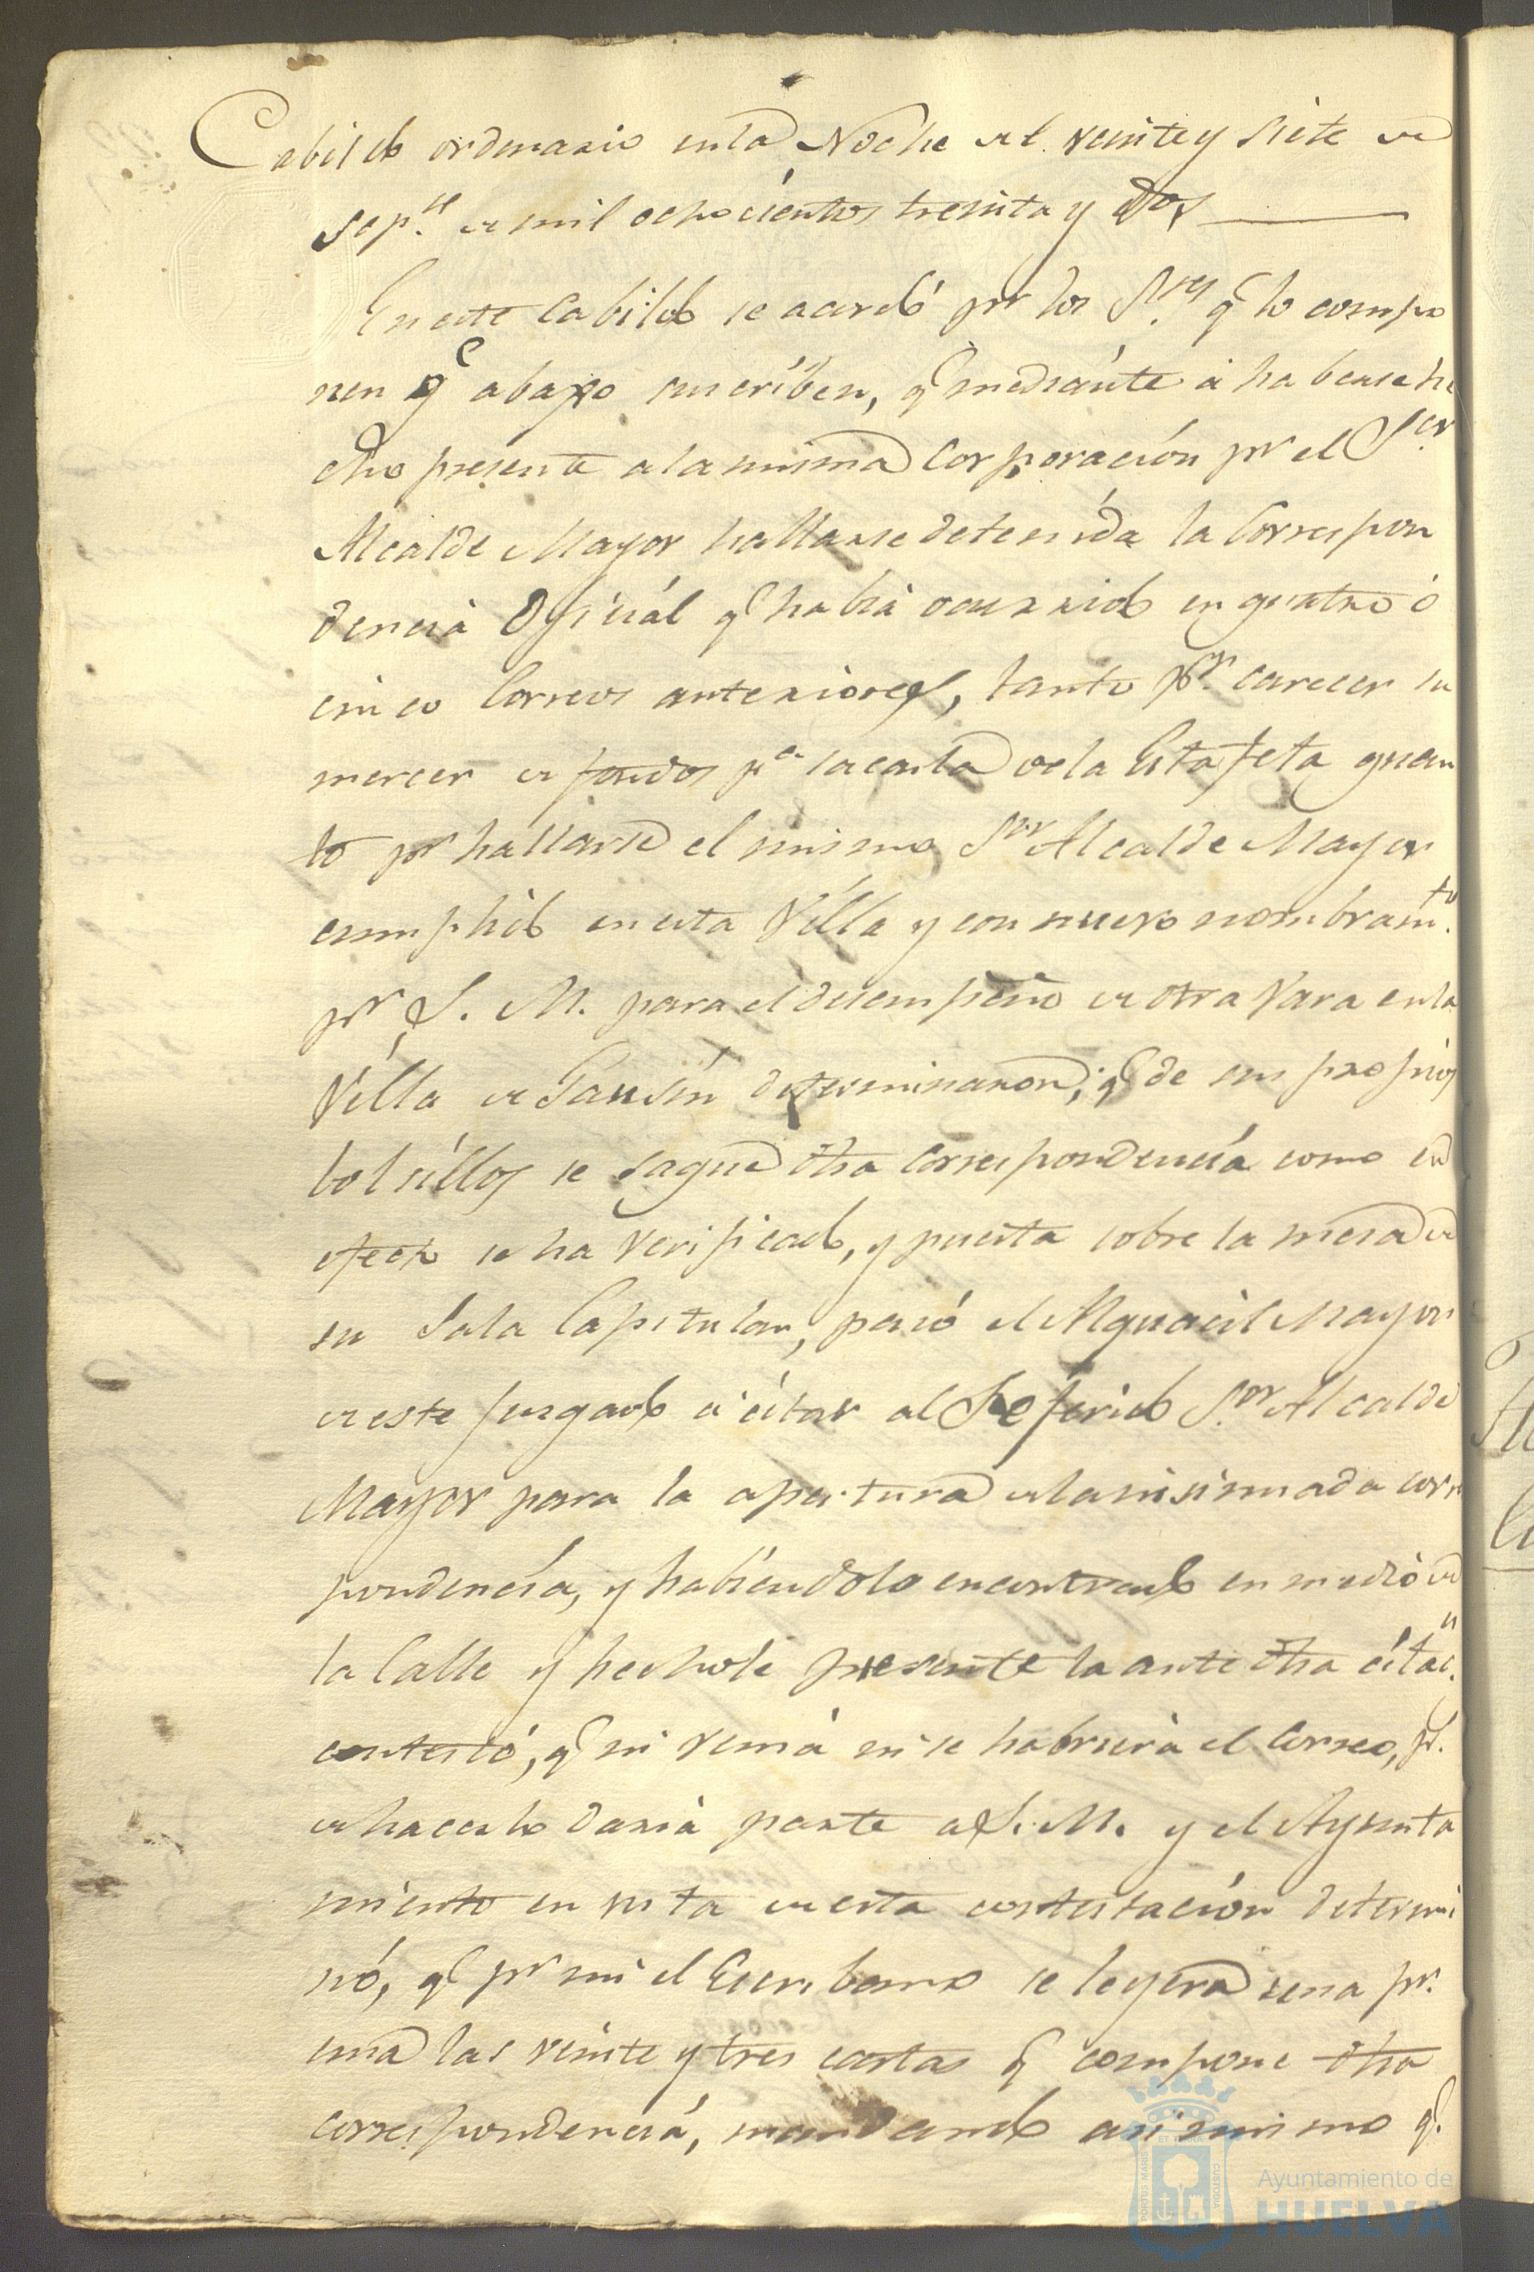 Cabildo ordenario en la Noche del veinte y siete de
sepre. de mil ochocientos treinta y dos
En este Cabildo se acordó pr los Sres. q.e lo compo
nen q.e abajo suscriben, q.e mediante á haberse he
cho presente a la misma Corporación pr el Sor.
Alcalde Mayor hallarse detenida la Correspon
dencia Oficiál q.e habia ocurrido en quatro ó
cinco Correos anteriores, tanto por. carecer su
merced de fondos pa sacarla de la Estafeta quan
to pr hallarse el mismo Sor Alcalde Mayor
cumplido en esta Villa y con nuevo nombramto.
pr S. M. para el desempeño de otra Vara en la
Villa de Gausín determinaron, q.e de sus propios
bolsillos se saque dha correspondencia como en
efecto se ha verificado, y puesta sobre la mesa de
su Sala Capitular, pasó el Alguacil Mayor
de este Juzgado á citar al Referido Sor. Alcalde
Mayor para la apertura de la nisinuada corres
pondencia, y habiendolo encontrado en medio de
la Calle y hechole presente la ante dha citacn.
contestó, q.e ni venia ni se habriria el Correo, pr.
de hacerlo daria parte a S. M. y el Ayunta
miento en vista de esta contestación determi
nó, q.e pr mi el Escribano se leyera una pr.
una las veinte y tres cartas q.e compone dha
correspondencia, mandando asi mismo q.e
Ayuntamiento de
HUELVA